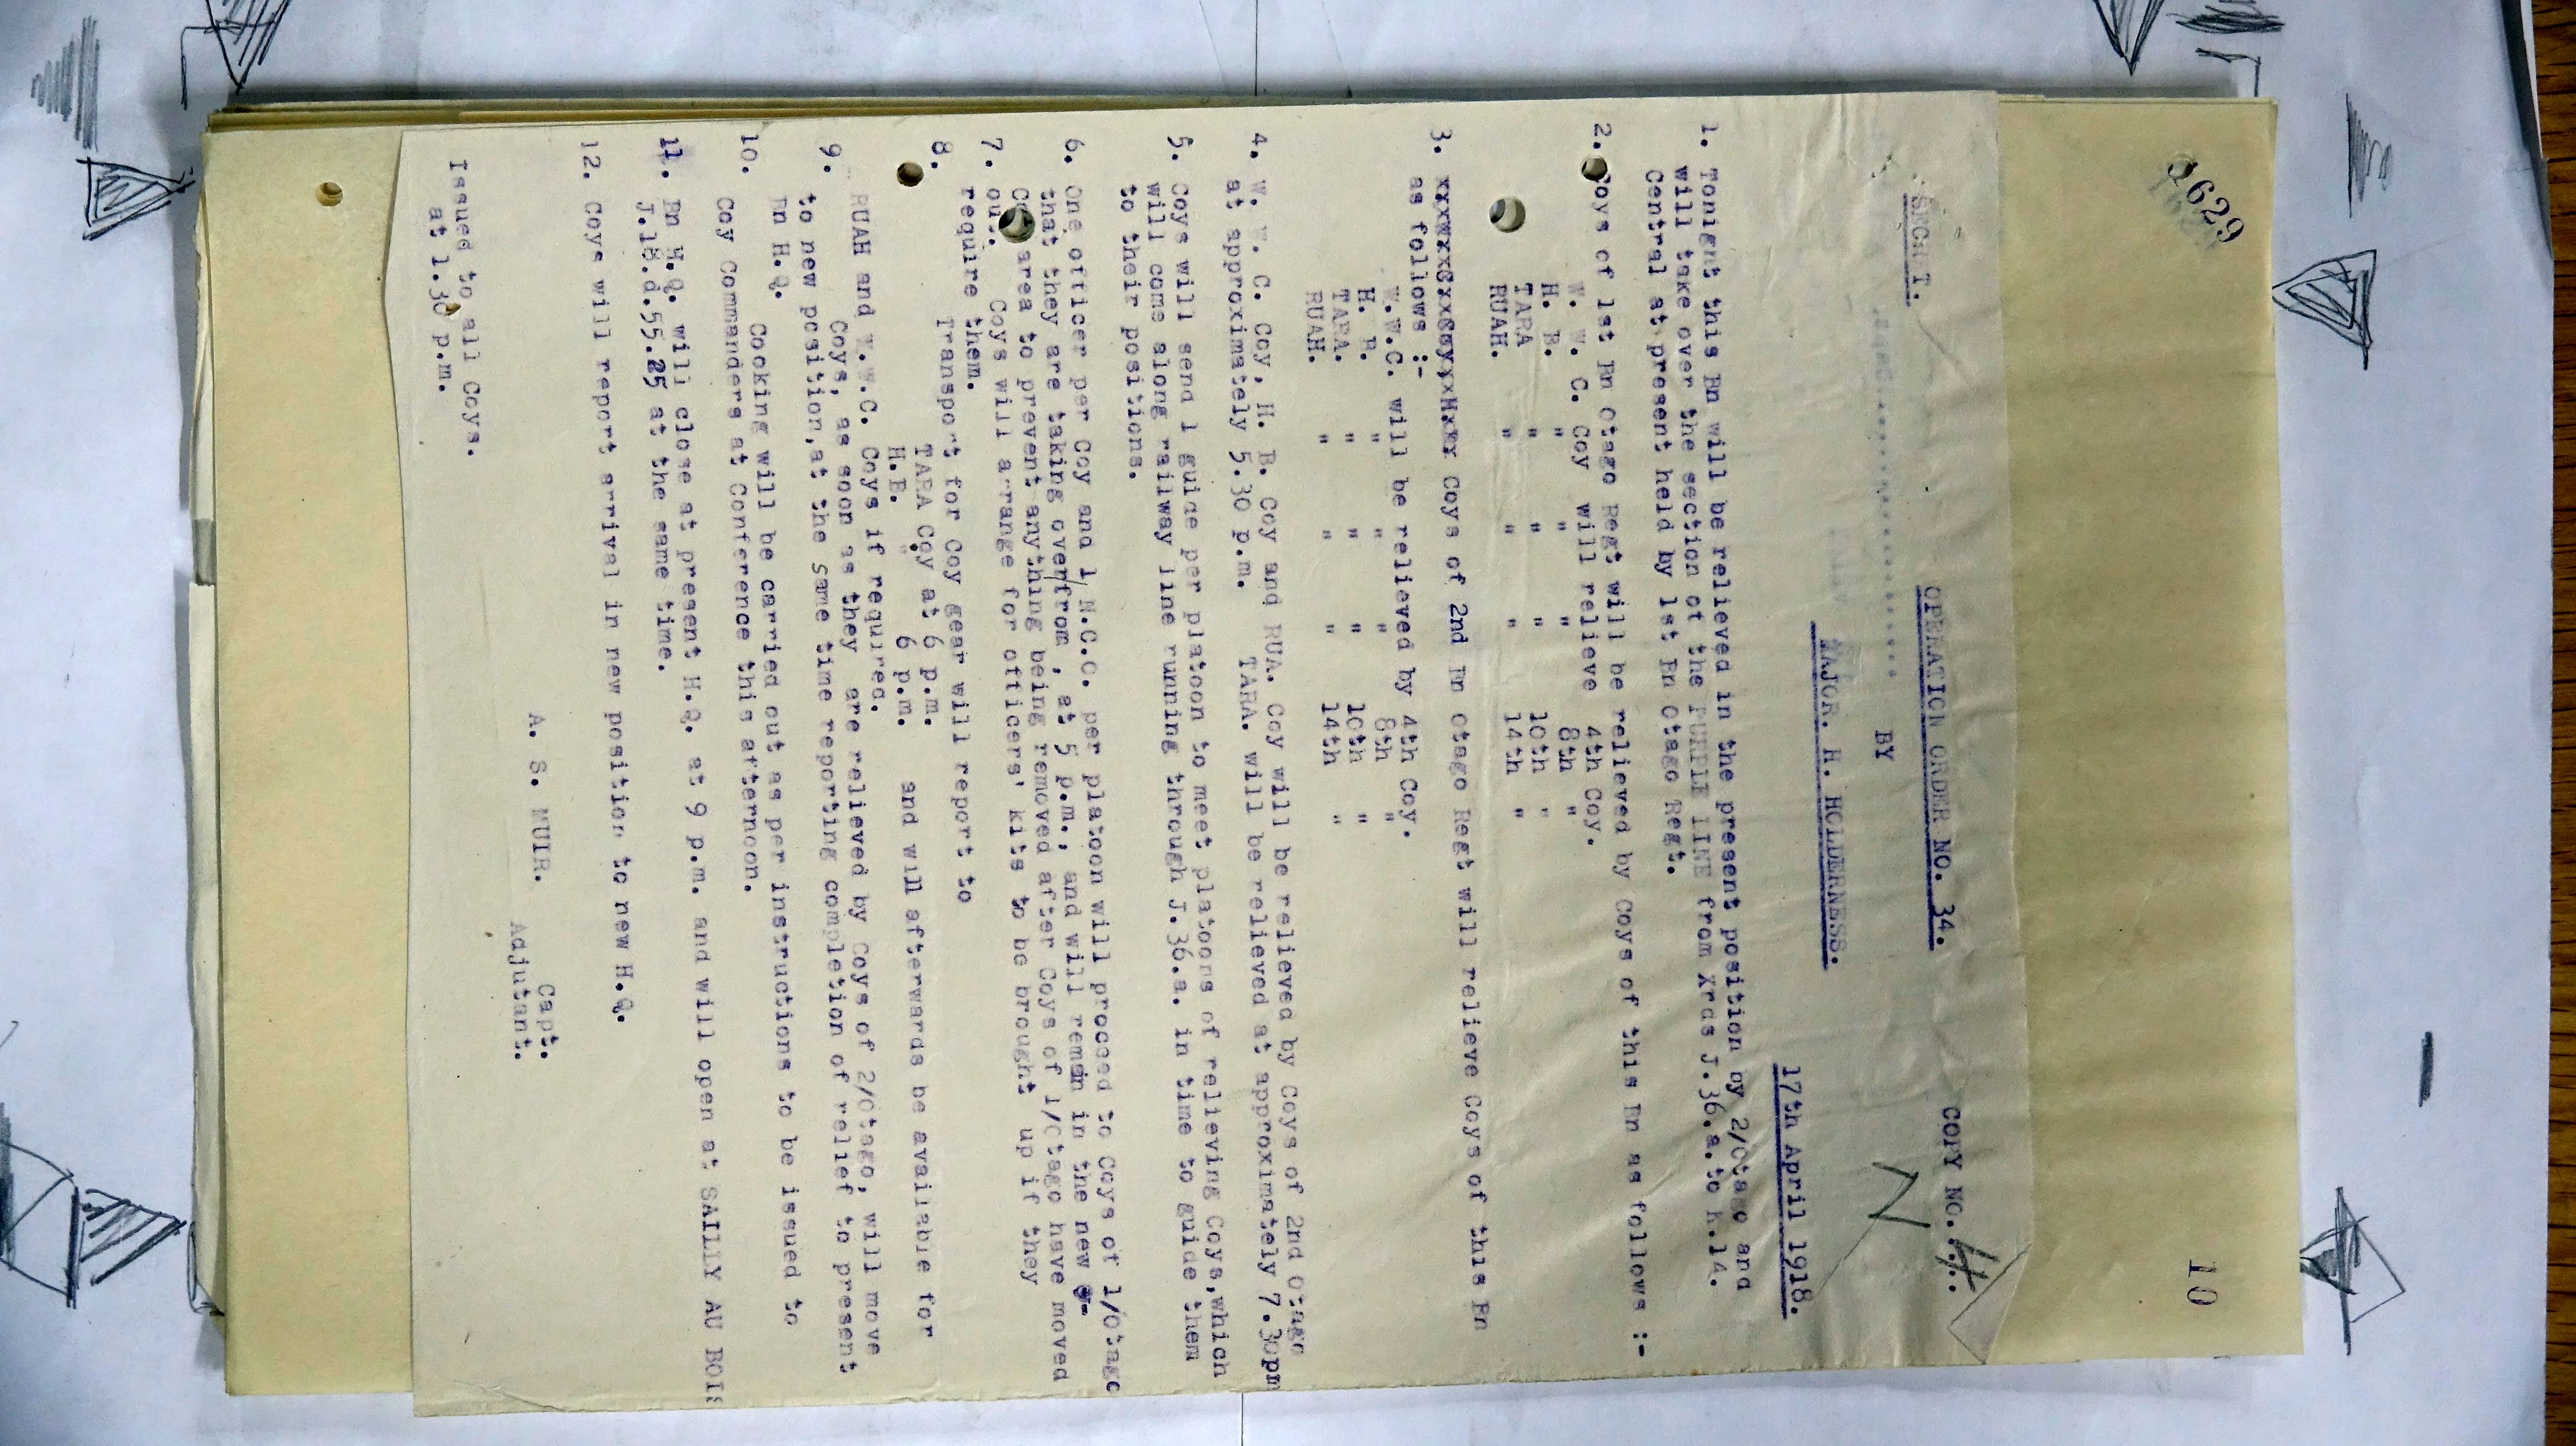 2629
10
SECRET.
OPERATION ORDER NO. 34.
COPY NO. 4.
BY
MAJOR. H. HOLDERNESS.
17th April 1918.
1. Tonight this Bn will be relieved in the present position by 2/Otago and
will take over the section of the PURPLE LINE from Xrds J.36.a.to K.14.
Central at present held by 1st Bn Otago Regt.
2. Coys of 1st Bn Otago Regt will be relieved by Coys of this Bn as follows :-
W. W. C. Coy will relieve 4th Coy.
H. B. " " " 8th "
TARA " " " 10th "
RUAH. " " " 14th "
3. Coys of 2nd Bn Otago Regt will relieve Coys of this Bn
as follows :-
W.W.C. will be relieved by 4th Coy.
H. B. " " " 8th "
TARA. " " " 10th "
RUAH. " " " 14th "
4. W. W. C. Coy, H. B. Coy and RUA. Coy will be relieved by Coys of 2nd Otago
at approximately 5.30 p.m. TARA. will be relieved at approximately 7.30pm
5. Coys will send 1 guide per platoon to meet platoons of relieving Coys,which
will come along railway line running through J.36.a. in time to guide them
to their positions.
6. One officer per Coy and 1 N.C.O. per platoon will proceed to Coys of 1/Otago
that they are taking over/from , at 5 p.m., and will remain in the new
Coy area to prevent anything being removed after Coys of 1/Otago have moved
out.
7. Coys will arrange for officers' kits to be brought up if they
require them.
8. Transport for Coy gear will report to
TARA Coy at 6 p.m.
H.B. " 6 p.m. and will afterwards be available for
RUAH and W.W.C. Coys if required.
9. Coys, as soon as they are relieved by Coys of 2/Otago, will move
to new position,at the same time reporting completion of relief to present
Bn H.Q.
10. Cooking will be carried out as per instructions to be issued to
Coy Commanders at Conference this afternoon.
11. Bn H.Q. will close at present H.Q. at 9 p.m. and will open at SAILLY AU BOIS
J.18.d.55.25 at the same time.
12. Coys will report arrival in new position to new H.Q.
A. S. MUIR. Capt.
Adjutant.
Issued to all Coys.
at 1.30 p.m.